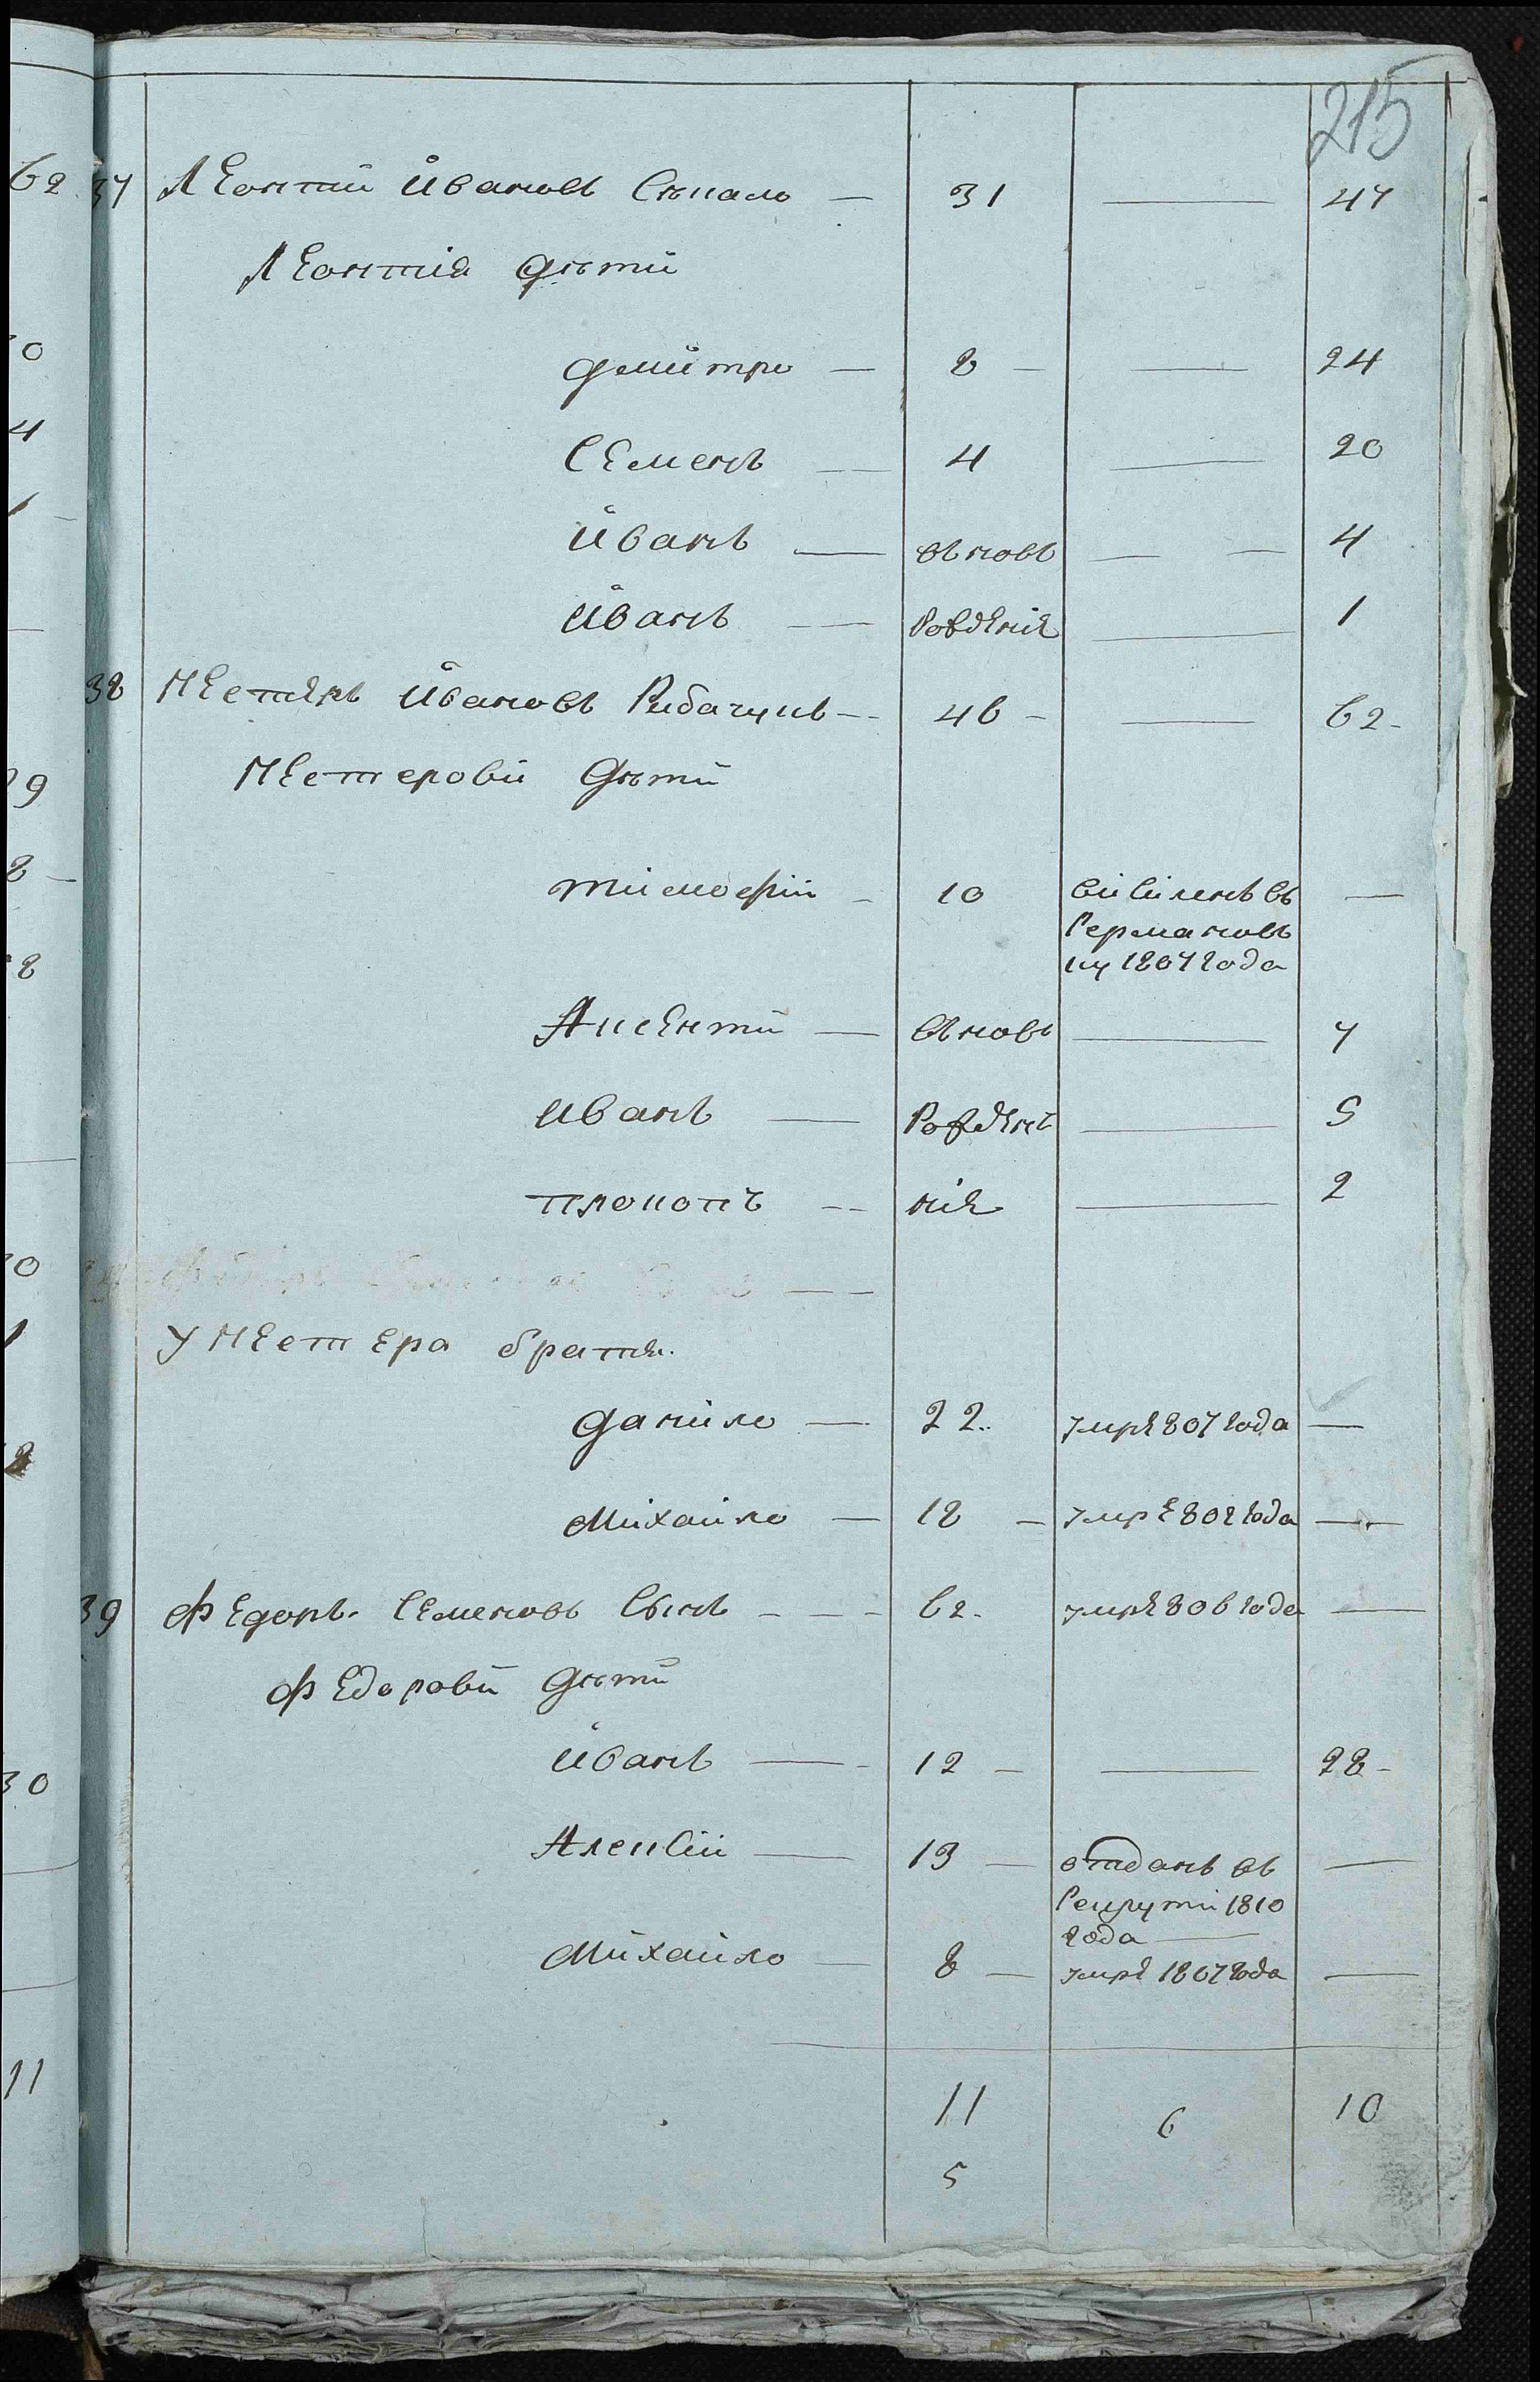 215
37 Леонтий Ивановъ Сѣпало — 31 — 47
Леонтія дѣти
Дмитро — 8 — 24
Семенъ — 4 — 20
Иванъ — въновь — 4
Иванъ — рождение — 1
38 Нестеръ Ивановъ Рибачукъ — 46 — 62
Нестерови дѣти
Тимофій — 10 висиланъ въ —
Германов
ку 1807 года
Аксенти — въновь — 7
Иванъ — рожден — 5
Прокопъ — ние — 2
У Нестера братя
Данило — 22 умре 807 года —
Михайло — 18 — умре 808 года —
39 Федоръ Семеновъ Синъ — 62 умре 806 года —
Федорови дѣти
Иванъ — 12 — 28
Алексій — 19 — отданъ въ —
рекрути 1810
года
Михайло — 8 — умре 1807 года —
11 6 10
5